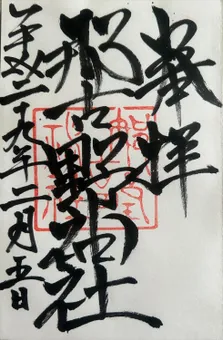 奉拝
那古野神社
平成二十九年二月五日